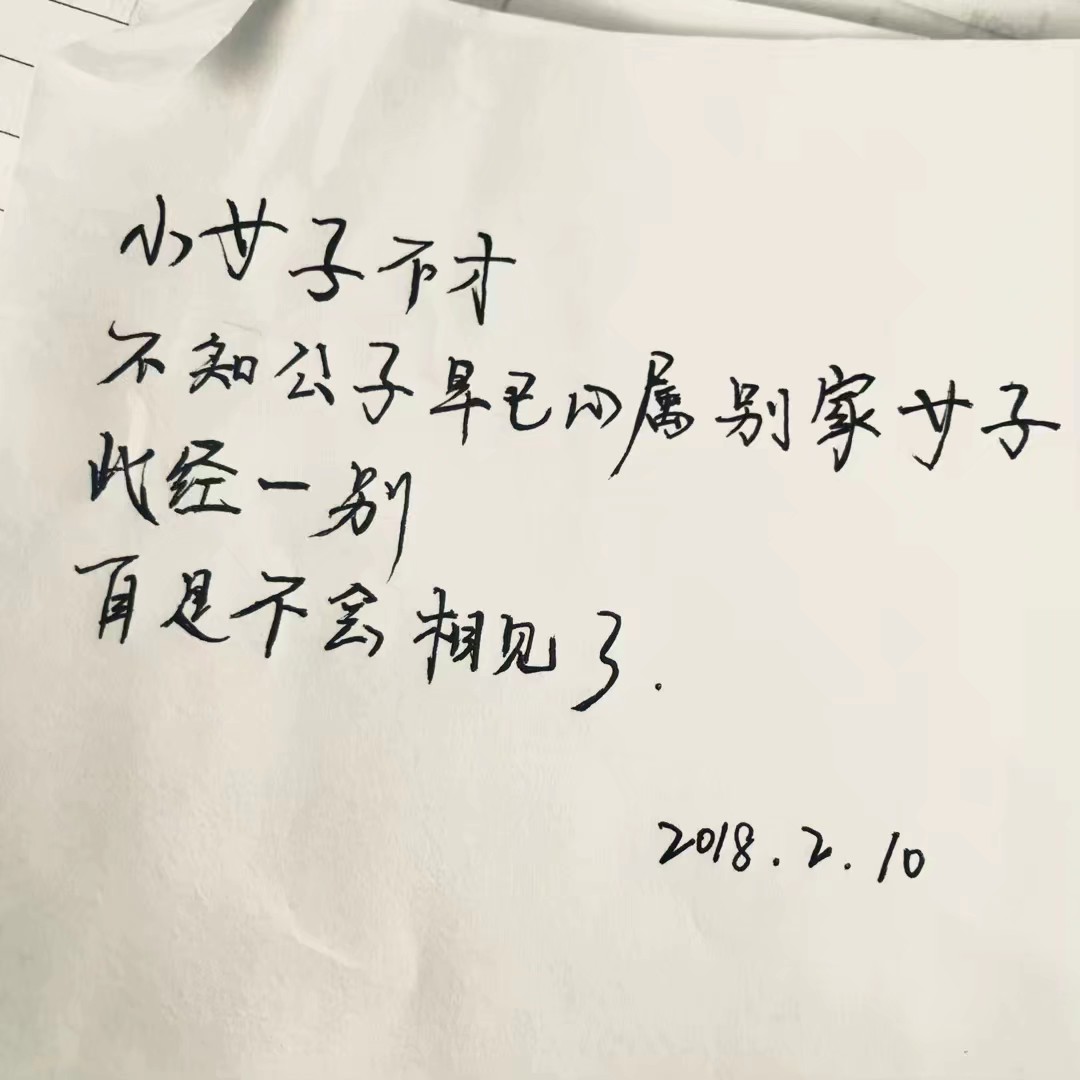 小女子不才
不知公子早已心属别家女子
此经一别
自是不会相见了.
2018.2.10